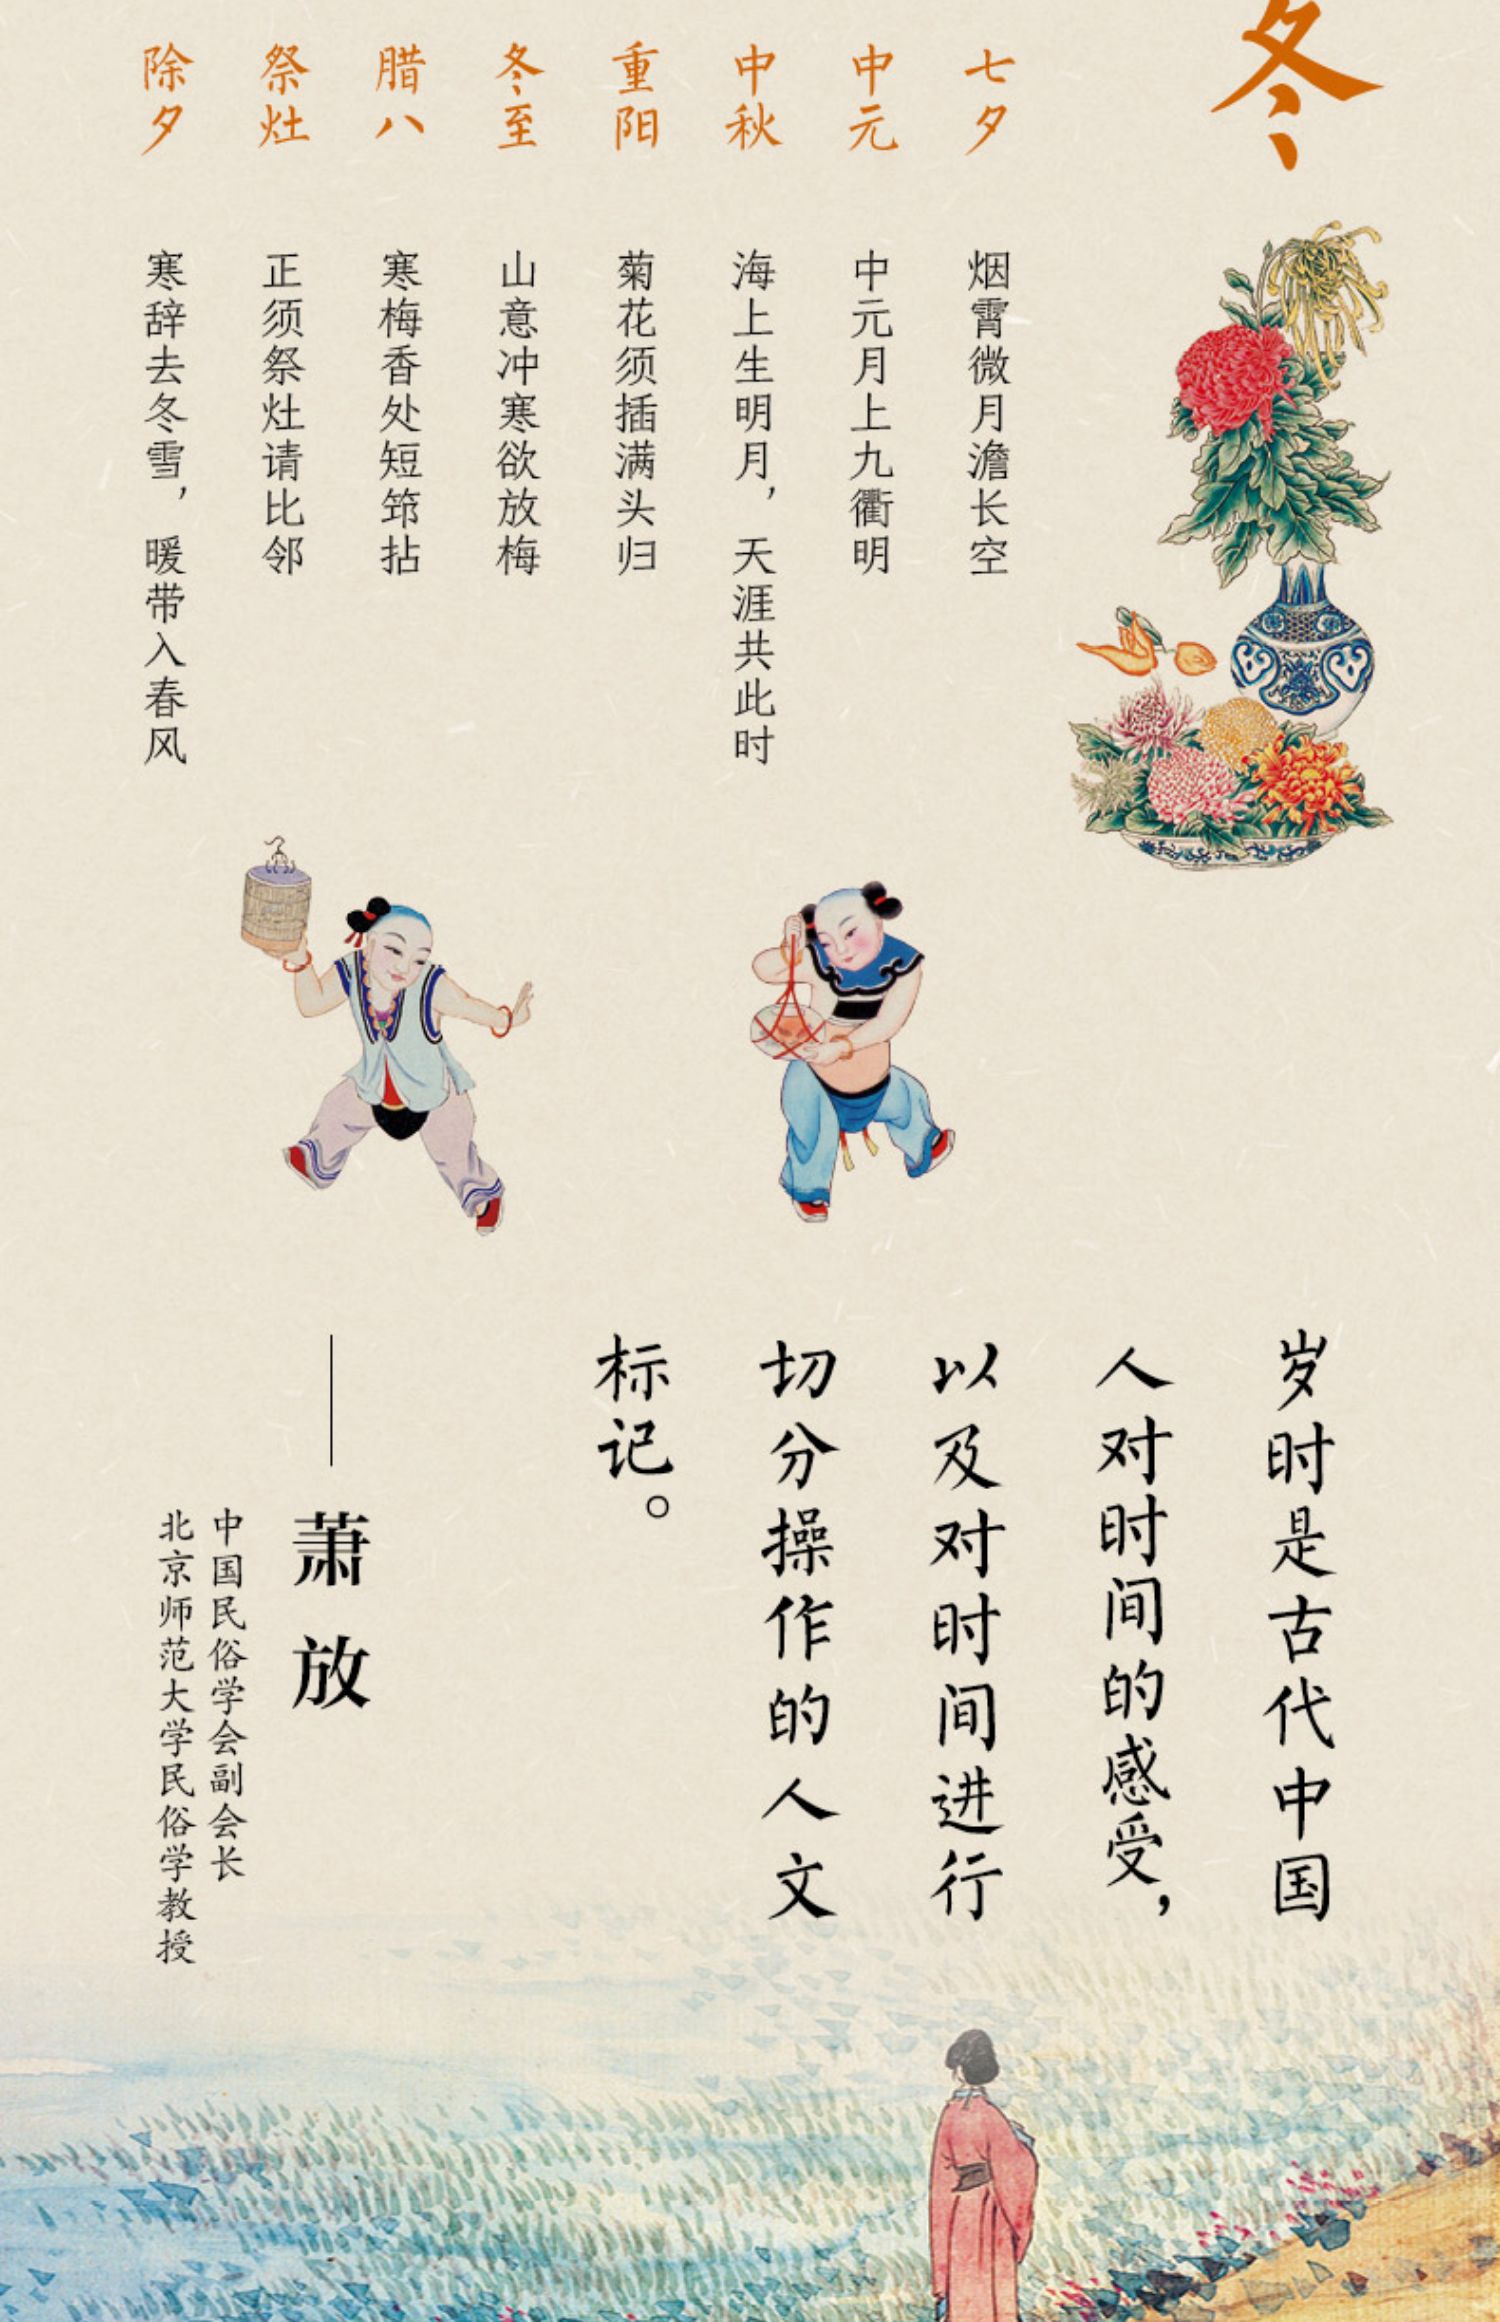 冬
七夕
烟霄微月澹长空
中元
中元月上九衢明
中秋
海上生明月，天涯共此时
重阳
菊花须插满头归
冬至
山意冲寒欲放梅
腊八
寒梅香处短筇拈
祭灶
正须祭灶请比邻
除夕
寒辞去冬雪，暖带入春风
岁时是古代中国
人对时间的感受，
以及对时间进行
切分操作的人文
标记。
——萧放
中国民俗学会副会长
北京师范大学民俗学教授